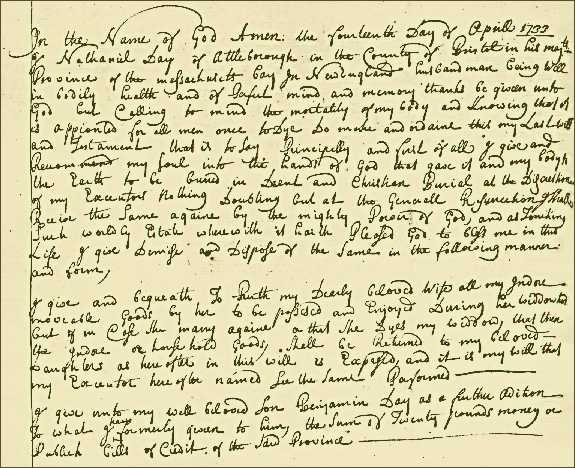 In the Name of God Amen: the fourteenth Day of Aprill 1733
I Nathaniel Day of Attleborough in the County of Bristol in his majtis
Province of the massachusetts bay In Newengland husbandman being well
in bodily health and of Saful mind and memory thanks be given unto
God but Calling to mind the mortality of my body and Knowing that it
is appionted for all men once to Dye Do make and ordaine this my Last will
and Testament that is to Say Principally and furst of all I give and
Recommend my Soul into the hands of God that gave it and my body to
the Earth to be buried in Decent and Christian Burial at the Discretion
of my Executors Nothing Doubting but at the Generall Resurection I Shall
Receive the Same againe by the mighty Power of God, and as Touching
Such worldly Estate wherewith it hath Pleased God to bless me in this
Life I give Demise and Dispose of the Same in the following manner
and form,
I give and bequeath To Ruth my Dearly beloved wife all my Indore
moveable Goods by her to be possesed and Enjoyed During her widdowhood
but if in Case She marry againe or that She Dyes my widdow, that then
the Indore or household Goods, Shall be Returned to my beloved
Daughters as here after in this will is Expresed, and it is my will that
my Executor here after named See the Same Performed
I give unto my well beloved Son Benjamin Day as a further Adition
To what I have formerly given to him, the Sum of Twenty pounds money or
Publick Bills of Credit of the Said Province